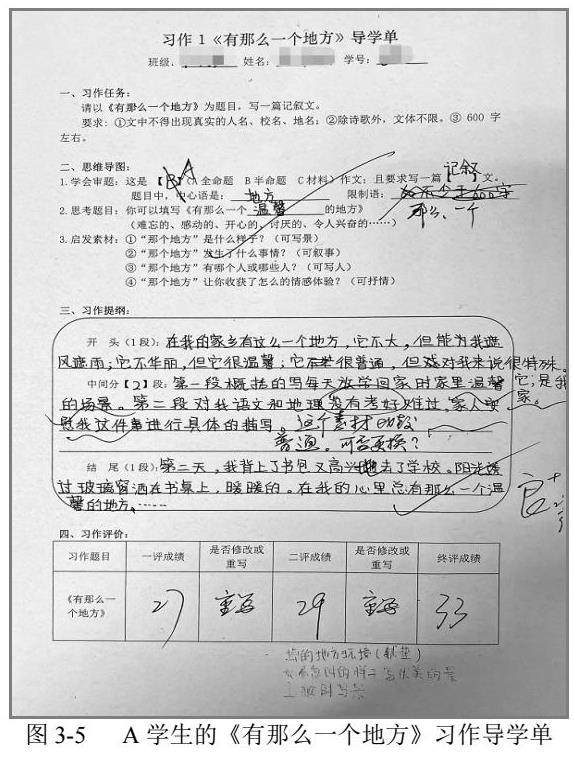 习作1《有那么一个地方》导学单
班级: 姓名: 学号:
一、习作任务:
请以《有那么一个地方》为题目，写一篇记叙文。
要求: ①文中不得出现真实的人名、校名、地名; ②除诗歌外，文体不限。③ 600 字
左右。
二、思维导图:
1.学会审题: 这是【A】(A 全命题 B 半命题 C 材料) 作文; 且要求写一篇【记叙】文。
题目中，中心语是: 地方 限制语: 那么、一个
2.思考题目: 你可以填写《有那么一个 温馨 的地方》
(难忘的、感动的、开心的、讨厌的、令人兴奋的……)
3.启发素材: ①“那个地方”是什么样子? (可写景)
②“那个地方”发生了什么事情? (可叙事)
③“那个地方”有哪个人或哪些人? (可写人)
④“那个地方”让你收获了怎么的情感体验? (可抒情)
三、习作提纲:
开 头 (1段): 在我的家乡有这么一个地方，它不大，但能为我遮
风遮雨; 它不华丽，但它很温馨; 它很普通，但对我来说很特殊。
它是我家。
中间分【2】段: 第一段概括的写每天放学回家时家里温馨
的场景。第二段对我语文和地理没有考好难过，家人安
慰我这件事进行具体的描写。
这个素材比较
普通。可否更换?
结 尾 (1段): 第二天，我背上了书包又高兴地去了学校。阳光透
过玻璃窗洒在书桌上，暖暖的。在我的心里总有那么一个温
馨的地方。……
四、习作评价:
习作题目 一评成绩 是否修改或重写 二评成绩 是否修改或重写 终评成绩
《有那么一个地方》 27 重写 29 重写 33
图 3-5 A 学生的《有那么一个地方》习作导学单